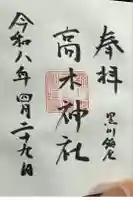 奉拝
黒川
高木神社
令和八年四月二十九日